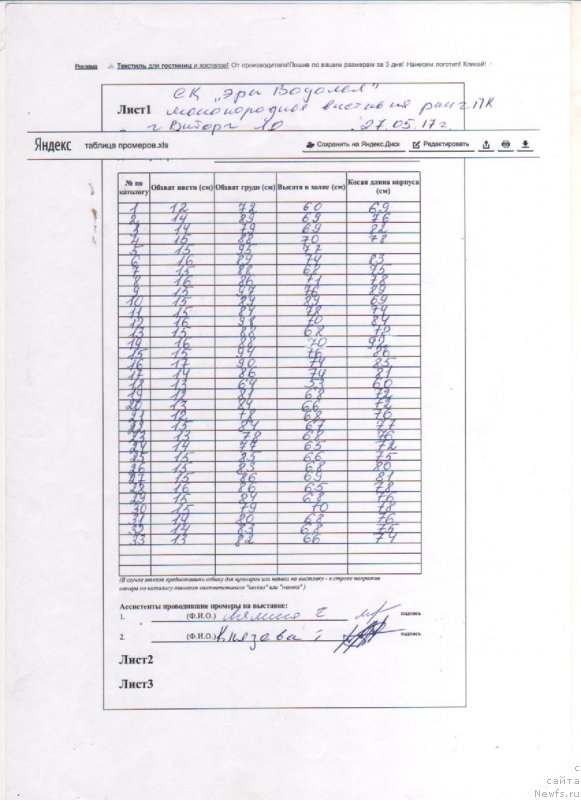 Реклама Текстиль для гостиниц и хостелов! От производителя!Пошив по вашим размерам за 3 дня! Нанесем логотип! Кликай!
СК „Эры Водолея"
Лист1 монопородная выставка ранг ПК
г Выборг 27.05.17г.
Яндекс таблица промеров.xls Сохранить на Яндекс.Диск Редактировать
№ по каталогу Обхват пясти (см) Обхват груди (см) Высота в холке (см) Косая длина корпуса (см)
1 12 72 60 69
2 14 89 69 76
3 14 79 69 82
4 15 88 70 78
5 15 95 77
6 16 89 74 83
7 15 88 68 75
8 16 86 71 78
9 15 97 76 89
10 15 89 69
11 15 84 78 74
12 16 94 70 84
13 15 88 68 78
14 16 88 70 92
15 15 94 76 86
16 17 90 74 85
17 14 86 74 81
18 13 64 53 60
19 12 81 68 72
20 13 84 66 72
21 12 78 68 70
22 15 84 67 77
23 13 78 68 76
24 14 77 65 72
25 15 85 66 75
26 15 83 68 80
27 15 86 69 81
28 16 86 65 78
29 15 84 68 76
30 15 79 70 78
31 14 80 68 76
32 14 83 68 75
33 13 82 66 74
(В случае
номера по каталогу
Ассистенты проводившие промеры на выставке:
1. (Ф.И.О.) подпись
2. (Ф.И.О.) Князева подпись
Лист2
Лист3
с
сайта
Newfs.ru